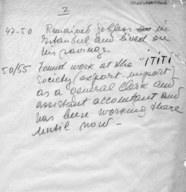 2
47-50 Remained jobless in
Istanbul and lived on
his savings.
50/55 Found work at the "ITITI
Society (export import)
as a general clerk and
assistant accountant and
has been working there
until now -